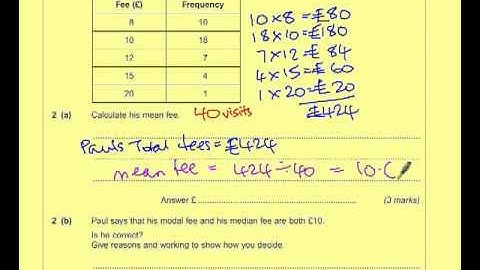 Fee (£) Frequency
8 10
10 18
12 7
15 4
20 1
10 × 8 = £80
18 × 10 = £180
7 × 12 = £ 84
4 × 15 = £ 60
1 × 20 = £20
£424
2 (a) Calculate his mean fee. 40 visits
Paul's Total fees = £424
mean fee = 424 ÷ 40 = 10.(
Answer £ (3 marks)
2 (b) Paul says that his modal fee and his median fee are both £10.
Is he correct?
Give reasons and working to show how you decide.